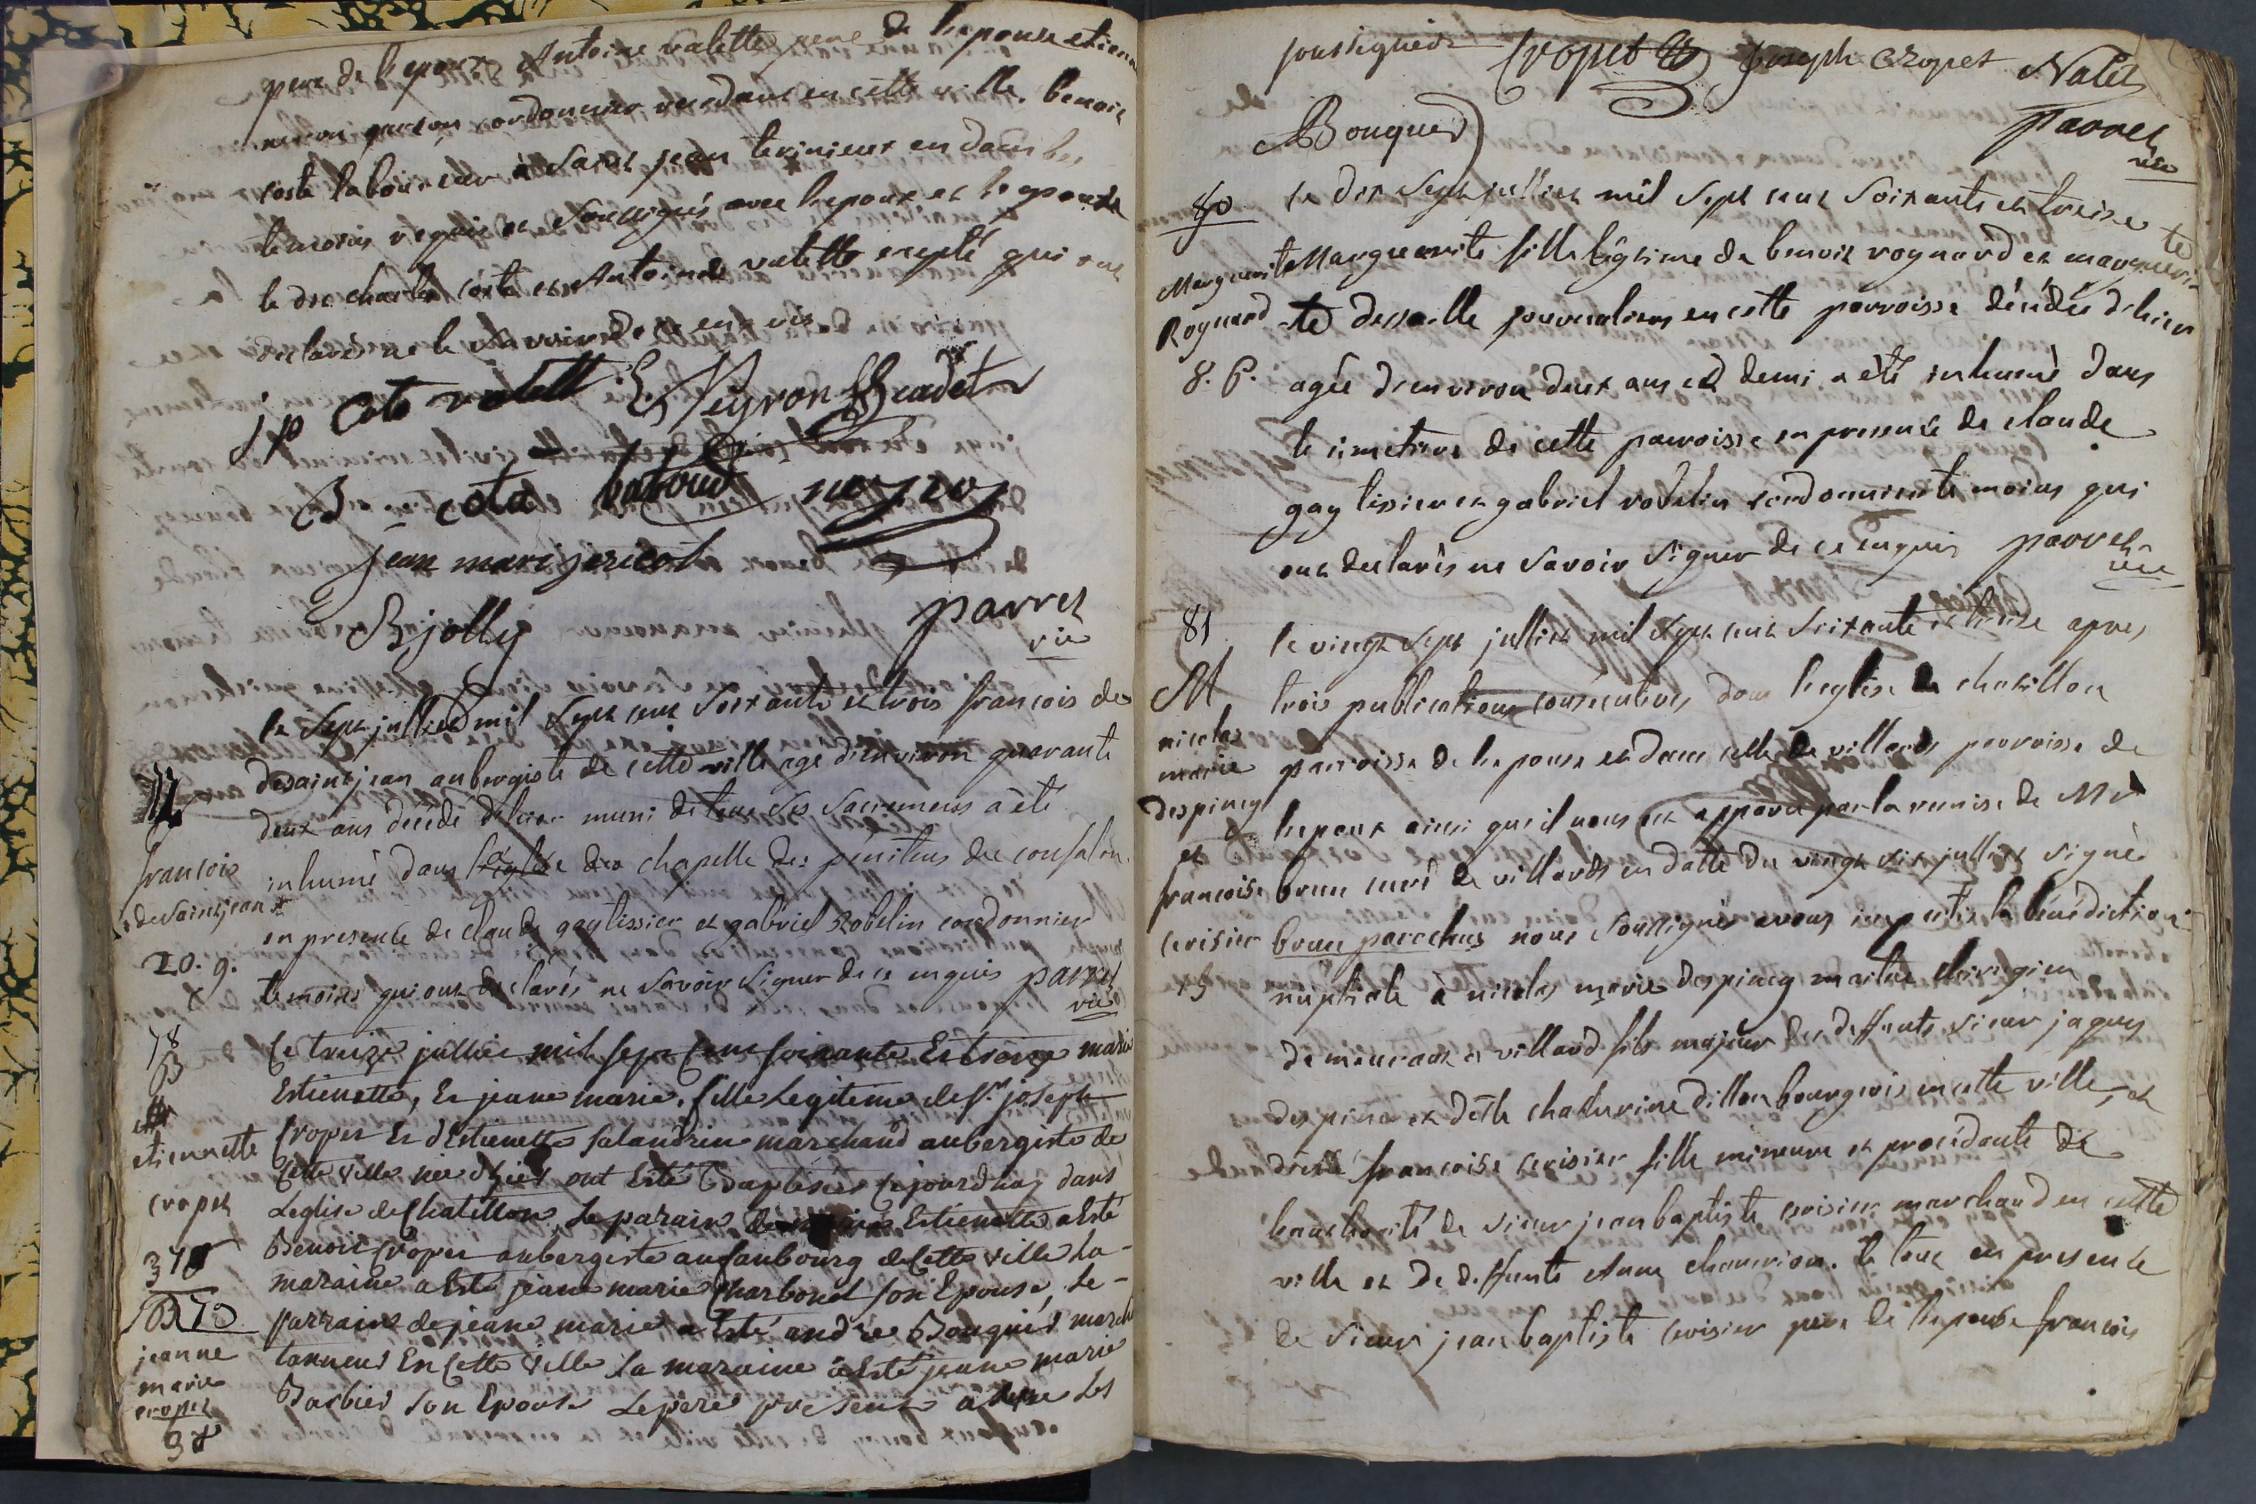 pere de l'epoux Antoine valette pere de l'epouse etienne
garcon cordonnier residant en cette ville, benoit
coste laboureur à Saint jean en dombes
temoins requis et Soussignés avec l'epoux et l'epouse
le dit charles coste et Antoine valette excepté qui ont
declarés ne le Savoir de ce enquis
jp Cote valett E Neyron cadet
B cota labouré neyroy
jean mari jericot
B jolly parret
vic
le Sept julliet mil Sept cent Soixante et trois francois de
desaintjean aubergiste de cette ville agé d'environ quarante
deux ans decedé d'hier muni de tous les Sacremens a été
inhumé dans l'église chapelle des pénitens du confalon
en presence de claude gaytissier et gabriel Robelin cordonnier
temoins qui ont declarés ne Savoir Signer de ce enquis parret
vic
francois
desaintjean
20. g.
78
B
etiennette
cropet
jeanne
marie
cropet
Le treize jullier mil sept cent soixante Et treize marie
Estienette, Et jeane marie, fille Legitime de sr joseph
Cropet Et d'Estienette Salandrin marchand aubergiste de
Cette ville née d'hier ont Esté Baptisées Cejourdhuy dans
Leglise de Chatillon, Le parain de Estienette a Esté
Benoit Cropet aubergiste au faubourg de Cette ville La-
maraine a Esté jeane marie Charbonet son Epouse, Le-
parrain de jeane marie a Esté andré Bouquis march
tanneur En Cette ville La maraine a Esté jeane marie
Barbier son Epouse Le pere present a les
soussignéz Cropet Joseph Cropet Nalet
Bouquet
parret
vic
80
Marguerite
Rognard
8. P.
Le dix Sept julliet mil Sept cent Soixante et treize
Marguerite fille légitime de benoit rognard et marguerite
-te desseille journaliers en cette parroisse décédée d'hier
agée d'environ deux ans et demi a été inhumé dans
le cimetiere de cette parroisse en presence de claude
gay tissier et gabriel robelin cordonnier temoins qui
ont declarés ne Savoir Signer de ce enquis parret
vic
81
M
nicolas
marie
despiney
et
francoise
cerisier
15
le vingt Sept julliet mil Sept cent Soixante et treize apres
trois publications consecutives dans l'eglise de chatillon
parroisse de l'epouse et dans celle de villards parroisse de
l'epoux ainsi qu'il nous est apparu par la remise de Mr
brun curé de villards en datte du vingt Six julliet Signé
brun parochus nous Soussigné avons imparti la bénédiction
nuptiale à nicolas marie despiney maitre chirurgien
demeurant à villard fils majeur des deffunts Sieur jaques
despiney et delle chaturine dillon bourgeois en cette ville, et
delle francoise cerisier fille mineure et procédante de
l'authorité de Sieur jean baptiste cerisier marchand en cette
ville et de deffunte anne chamrion. le tout en presence
de Sieur jean baptiste cerisier pere de l'epouse francois